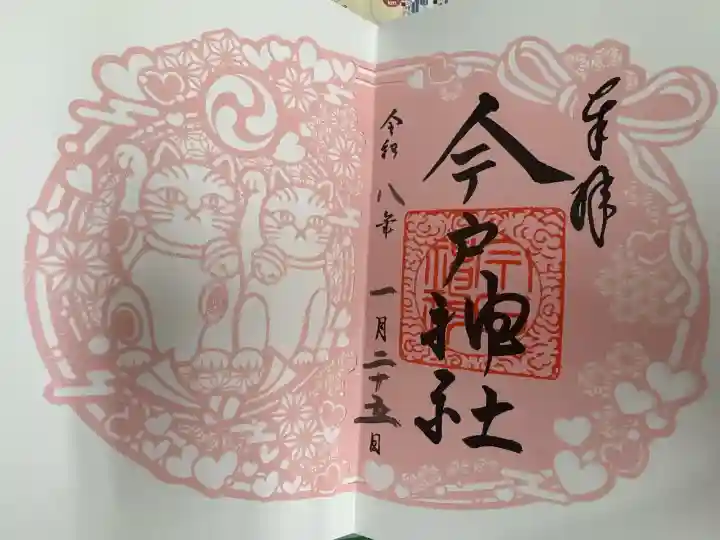 奉拝
今戸神社
令和八年
一月二十五日